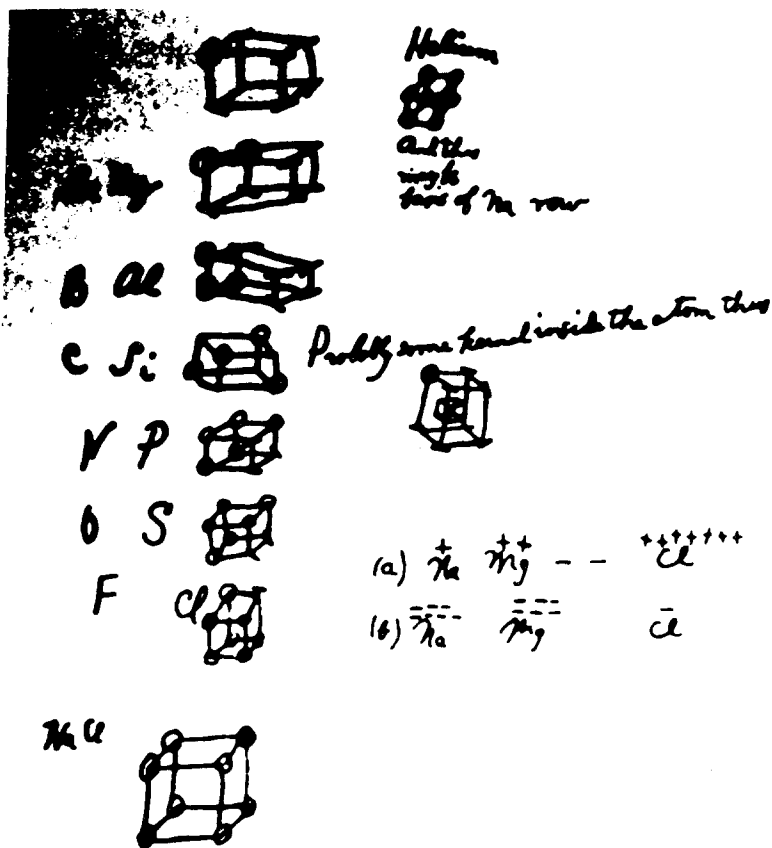 Helium
And this
might
basis of Na row
Be Mg
B Al
C Si
Probably some kernel inside the atom thus
N P
O S
F Cl
(a) Na + Mg ++ - - Cl +++++++
(b) Na Mg Cl -
Na Cl